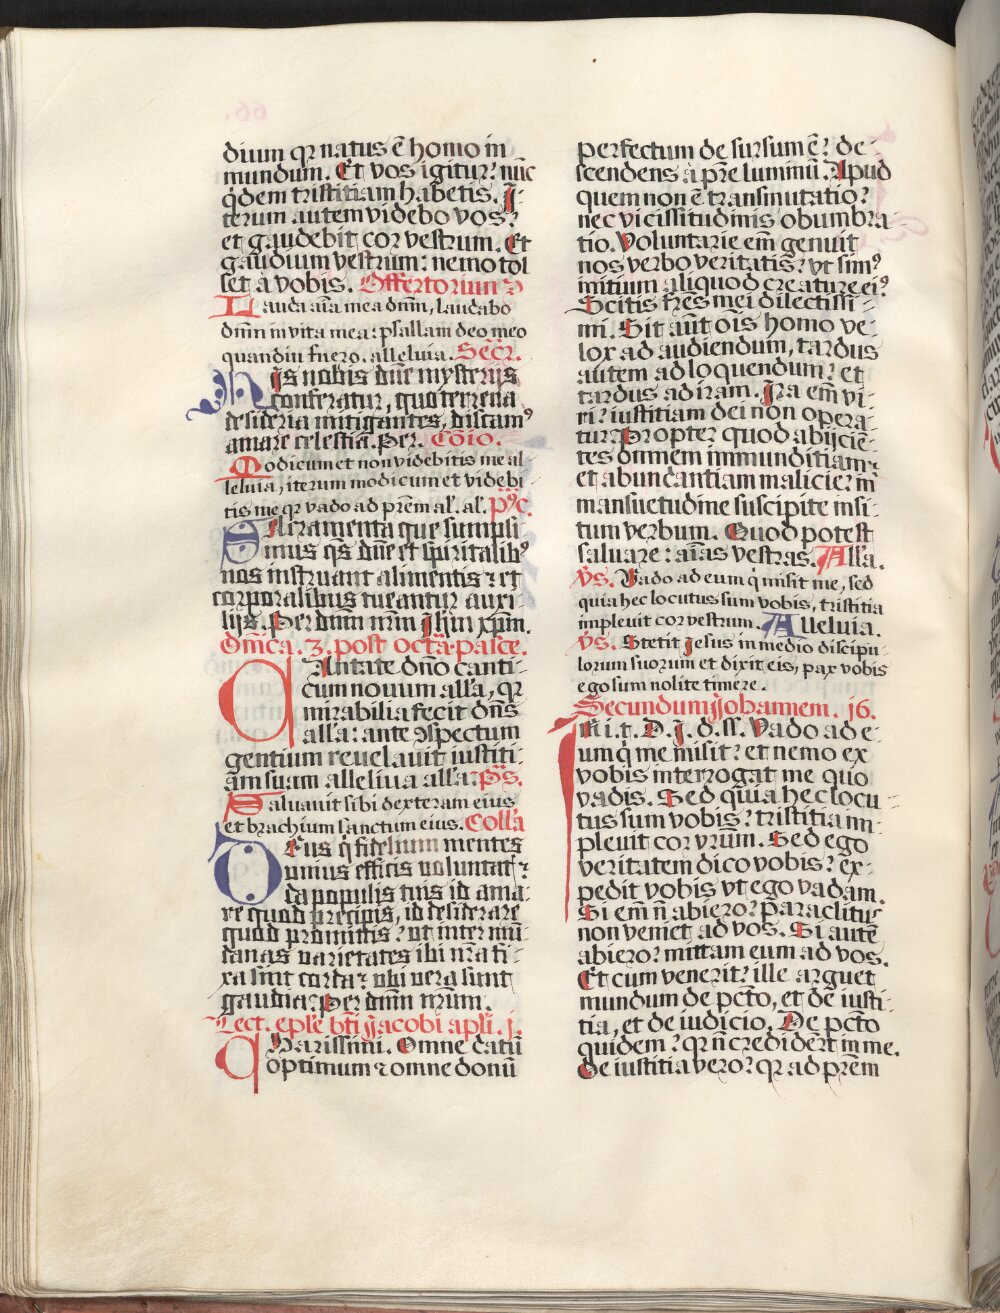 dium qꝛ natus ē homo in
mundum. Et vos igitur? nūc
q̇dem tristitiam habetis. I-
terum autem videbo vos?
et gaudebit cor vestrum. Et
gaudium vestrum: nemo tol
let a vobis. Offertorium
Lauda aīa mea dn̄m, laudabo
dn̄m in vita mea: psallam deo meo
quandiu fuero. alleluia. Secr̄.
His nobis dn̄e mysterijs
conferatur, quo terrena
desideria mitigantes, discamꝰ
amare celestia. Per. Cōio.
Modicum et non videbitis me al-
leluia, iterum modicum et videbi-
tis me qꝛ vado ad prēm al'. al'. p'ꝰc.
Sacramenta que sumpsi-
mus q̄s dn̄e et sp̄uritalibꝰ
nos instruant alimentis ⁊ et
corporalibus tueantur auxi-
lijs. Per dn̄m nr̄m Ih̄m xp̄m.
Dn̄ica. 3. post octā. pasce.
Cantate dn̄o canti-
cum nouum all'a, qꝛ
mirabilia fecit dn̄s
all'a: ante ꝯspectum
gentium reuelauit iustiti-
am suam alleluia all'a: p̄s.
Saluauit sibi dexteram eius
et brachium sanctum eius. Coll'a
Deus q̇ fidelium mentes
unius efficis uoluntatꝭ:
da populis tuis id ama-
re quod precipis, id desiderare
quod promittis? ut inter mū-
danas uarietates ibi nr̄a fi-
xa sint corda? ubi uera sunt
gaudia: Per dn̄m nr̄um.
Lect. epl'e bt̄i Jacobi apl'i. j.
Charissimi. Omne datū
optimum ⁊ omne donū
perfectum de sursum ē? de-
scendens a pr̄e luminū. Apud
quem non ē transmutatio?
nec vicissitudinis obumbra-
tio. Voluntarie em̄ genuit
nos verbo veritatis? vt simꝰ
initium aliquod creature eiꝰ.
Scitis fr̄es mei dilectissi-
mi. Sit aūt oīs homo ve-
lox ad audiendum, tardus
autem ad loquendum? et
tardus ad iram. Ira em̄ vi-
ri? iustitiam dei non opera-
tur. Propter quod abijciē-
tes omnem immunditiam:
et abundantiam malicie? in
mansuetudine suscipite insi-
tum verbum. Quod potest
saluare: aīas vestras. All'a.
V̄s. Vado ad eum q̇ misit me, sed
quia hec locutus sum vobis, tristitia
impleuit cor vestrum. Alleluia.
V̄s. Stetit Jesus in medio discipu-
lorum suorum et dixit eis, pax vobis
ego sum nolite timere.
Secundum Johannem. 16.
In i. t. D. J. d. ss. Vado ad e-
um q̇ me misit? et nemo ex
vobis interrogat me quo
vadis. Sed quia hec locu-
tus sum vobis? tristitia im-
pleuit cor vr̄um. Sed ego
veritatem dico vobis? ex-
pedit vobis vt ego vadam.
Si em̄ n̄ abiero? paraclitus
non veniet ad vos. Si autē
abiero? mittam eum ad vos.
Et cum venerit? ille arguet
mundum de pct̄o, et de iusti-
tia, et de iudicio. De pct̄o
quidem? qꝛ n̄ crediderūt in me.
De iustitia vero? qꝛ ad prēm